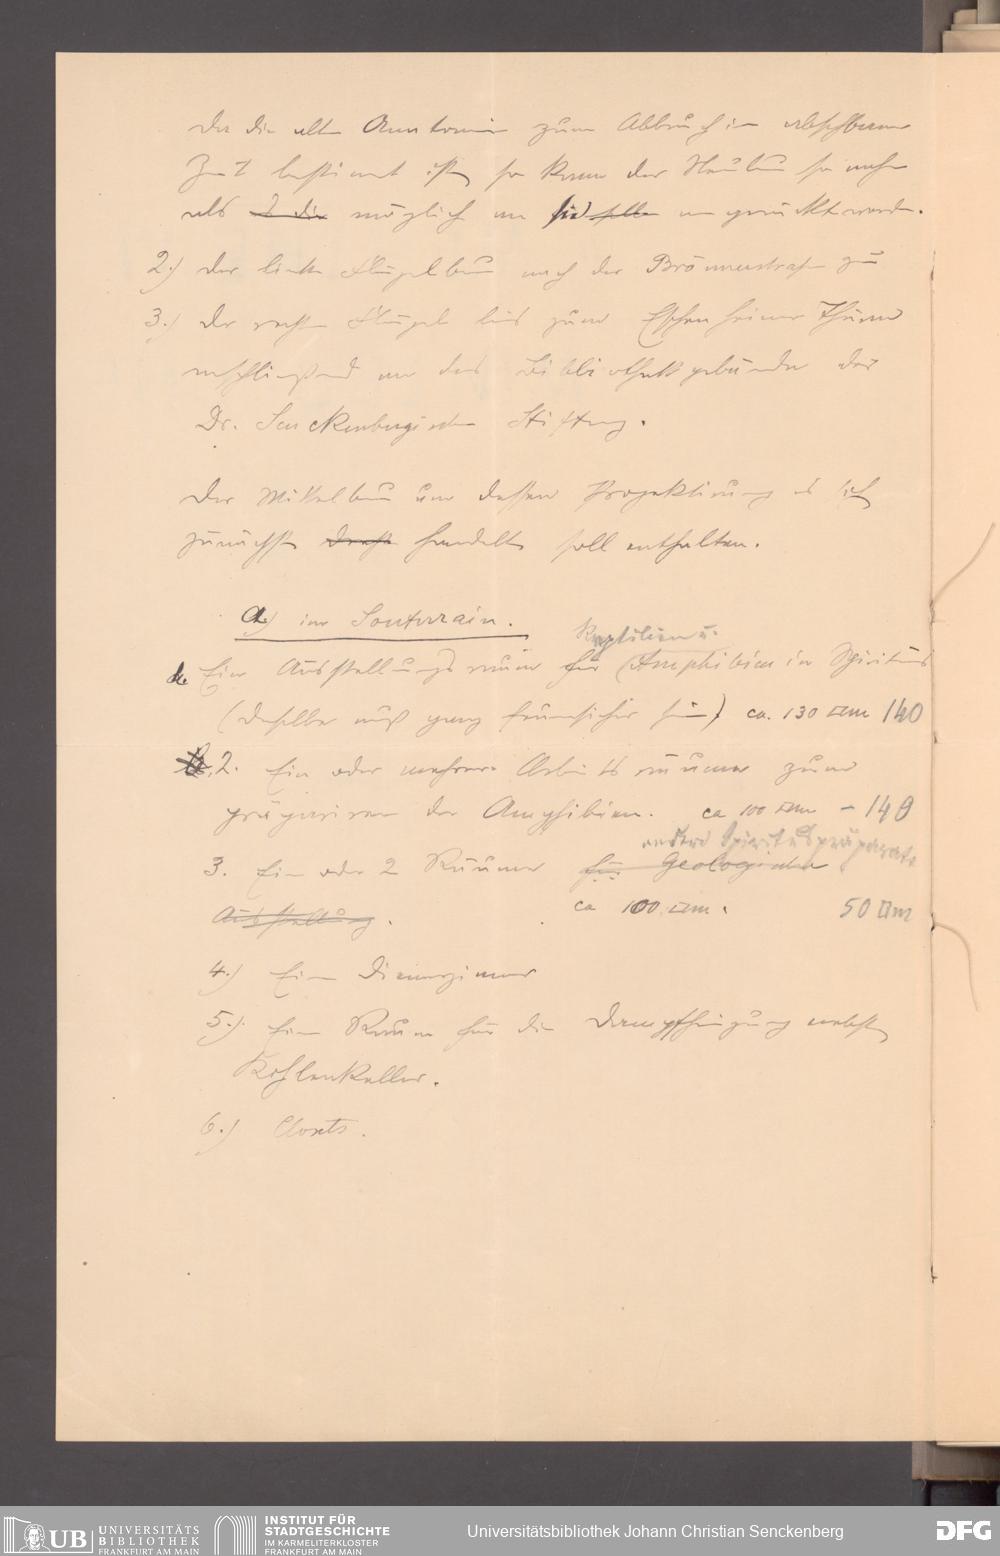 Da die alte Anatomie zum Abbruch in absehbarer
Zeit bestimmt ist, so kann der Neubau so nahe
als möglich an sie angerückt werden.
2.) der linke Flügelbau nach der Brönnerstrasse zu
3.) der rechte Flügel bis zum Eschenheimer Thurm
anschließend an das Bibliothekgebäude der
Dr. Senckenbergischen Stiftung.
Der Mittelbau um dessen Projektirung es sich
zunächst handelt, soll enthalten.
a) im Souterrain.
Reptilien u.
1. Ein Ausstellungsraum für Amphibien in Spiritus
(derselbe muß ganz feuersicher sein) ca. 130 □m 140
2. Ein oder mehrere Arbeitsräume zum
präpariren der Amphibien. ca 100 □m - 140
andere Spirituspräparate
3. Ein oder 2 Räume für Geologische
Ausstellung. ca 100 □m. 50 □m
4.) Ein Dienerzimmer
5.) Ein Raum für die Dampfheizung nebst
Kohlenkeller.
6.) Closets.
UB UNIVERSITÄTS
BIBLIOTHEK
FRANKFURT AM MAIN
INSTITUT FÜR
STADTGESCHICHTE
IM KARMELITERKLOSTER
FRANKFURT AM MAIN
Universitätsbibliothek Johann Christian Senckenberg
DFG